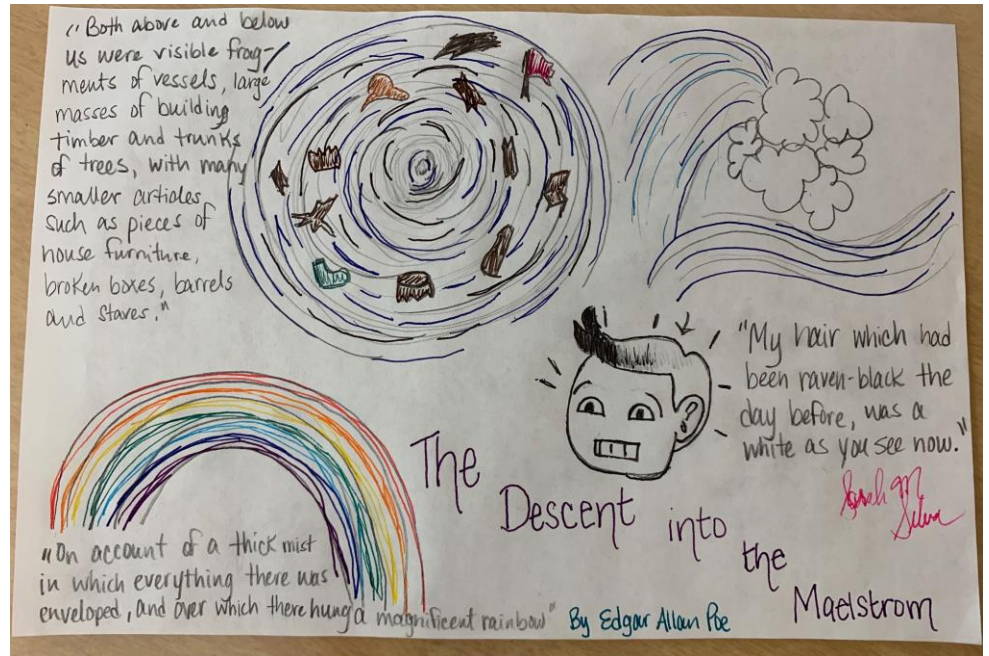 "Both above and below
us were visible frag-
ments of vessels, large
masses of building
timber and trunks
of trees, with many
smaller articles
such as pieces of
house furniture,
broken boxes, barrels
and staves."
"My hair which had
been raven-black the
day before, was a
white as you see now."
Sarah M
Silva
The
Descent into
the
Maelstrom
"On account of a thick mist
in which everything there was
enveloped, and over which there hung a magnificent rainbow"
By Edgar Allan Poe